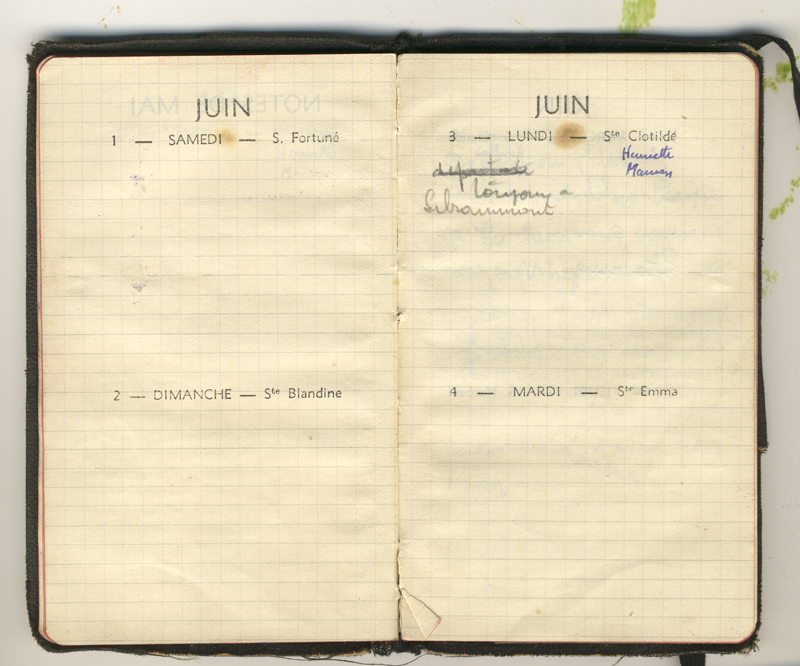 JUIN
1 — SAMEDI — S. Fortuné
2 — DIMANCHE — Ste Blandine
JUIN
3 — LUNDI — Ste Clotilde
Henriette
Maman
à
4 — MARDI — Ste Emma